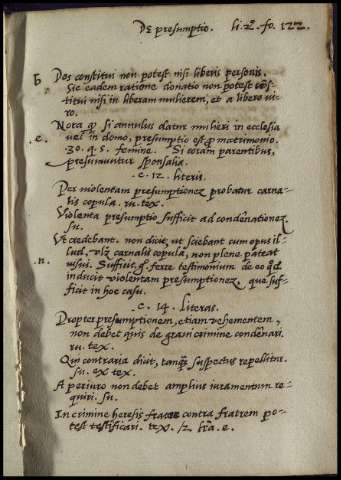 De presumptio. li. 2. fo. 122.
Dos constitui non potest nisi liberis personis.
Sic eadem ratione donatio non potest cōs-
titui nisi in liberam mulierem, et a libero ui-
ro.
Nota q si annulus datur mulieri in ecclesia
.e. uel in domo, presumptio est q matrimonio.
30. q. 5. femine. Si coram parentibus,
presumuntur sponsalia.
.c. 12. literis.
Per uiolentam presumptionez probatur carna-
lis copula. ru. tex.
Violenta presumptio sufficit ad condēnationez
su.
Vt credebant. non dicit, ut sciebant cum opus il-
lud, ulz carnalis copula, non plene pateat
.n. uisui. Sufficit g ferre testimonium de eo qd
inducit uiolentam presumptionez, que suf-
ficit in hoc casu.
.c. 14. literas.
Propter presumptionem, etiam uehementem,
non debet quis de graui crimine condēnari.
ru. tex.
Qui contraria dicit, tanqz suspectus repellitur.
su. ex tex.
A periuro non debet amplius iuramentum re-
quiri. su.
In crimine heresis frater contra fratrem po-
test testificari. tex. /2. lr̄a. e.